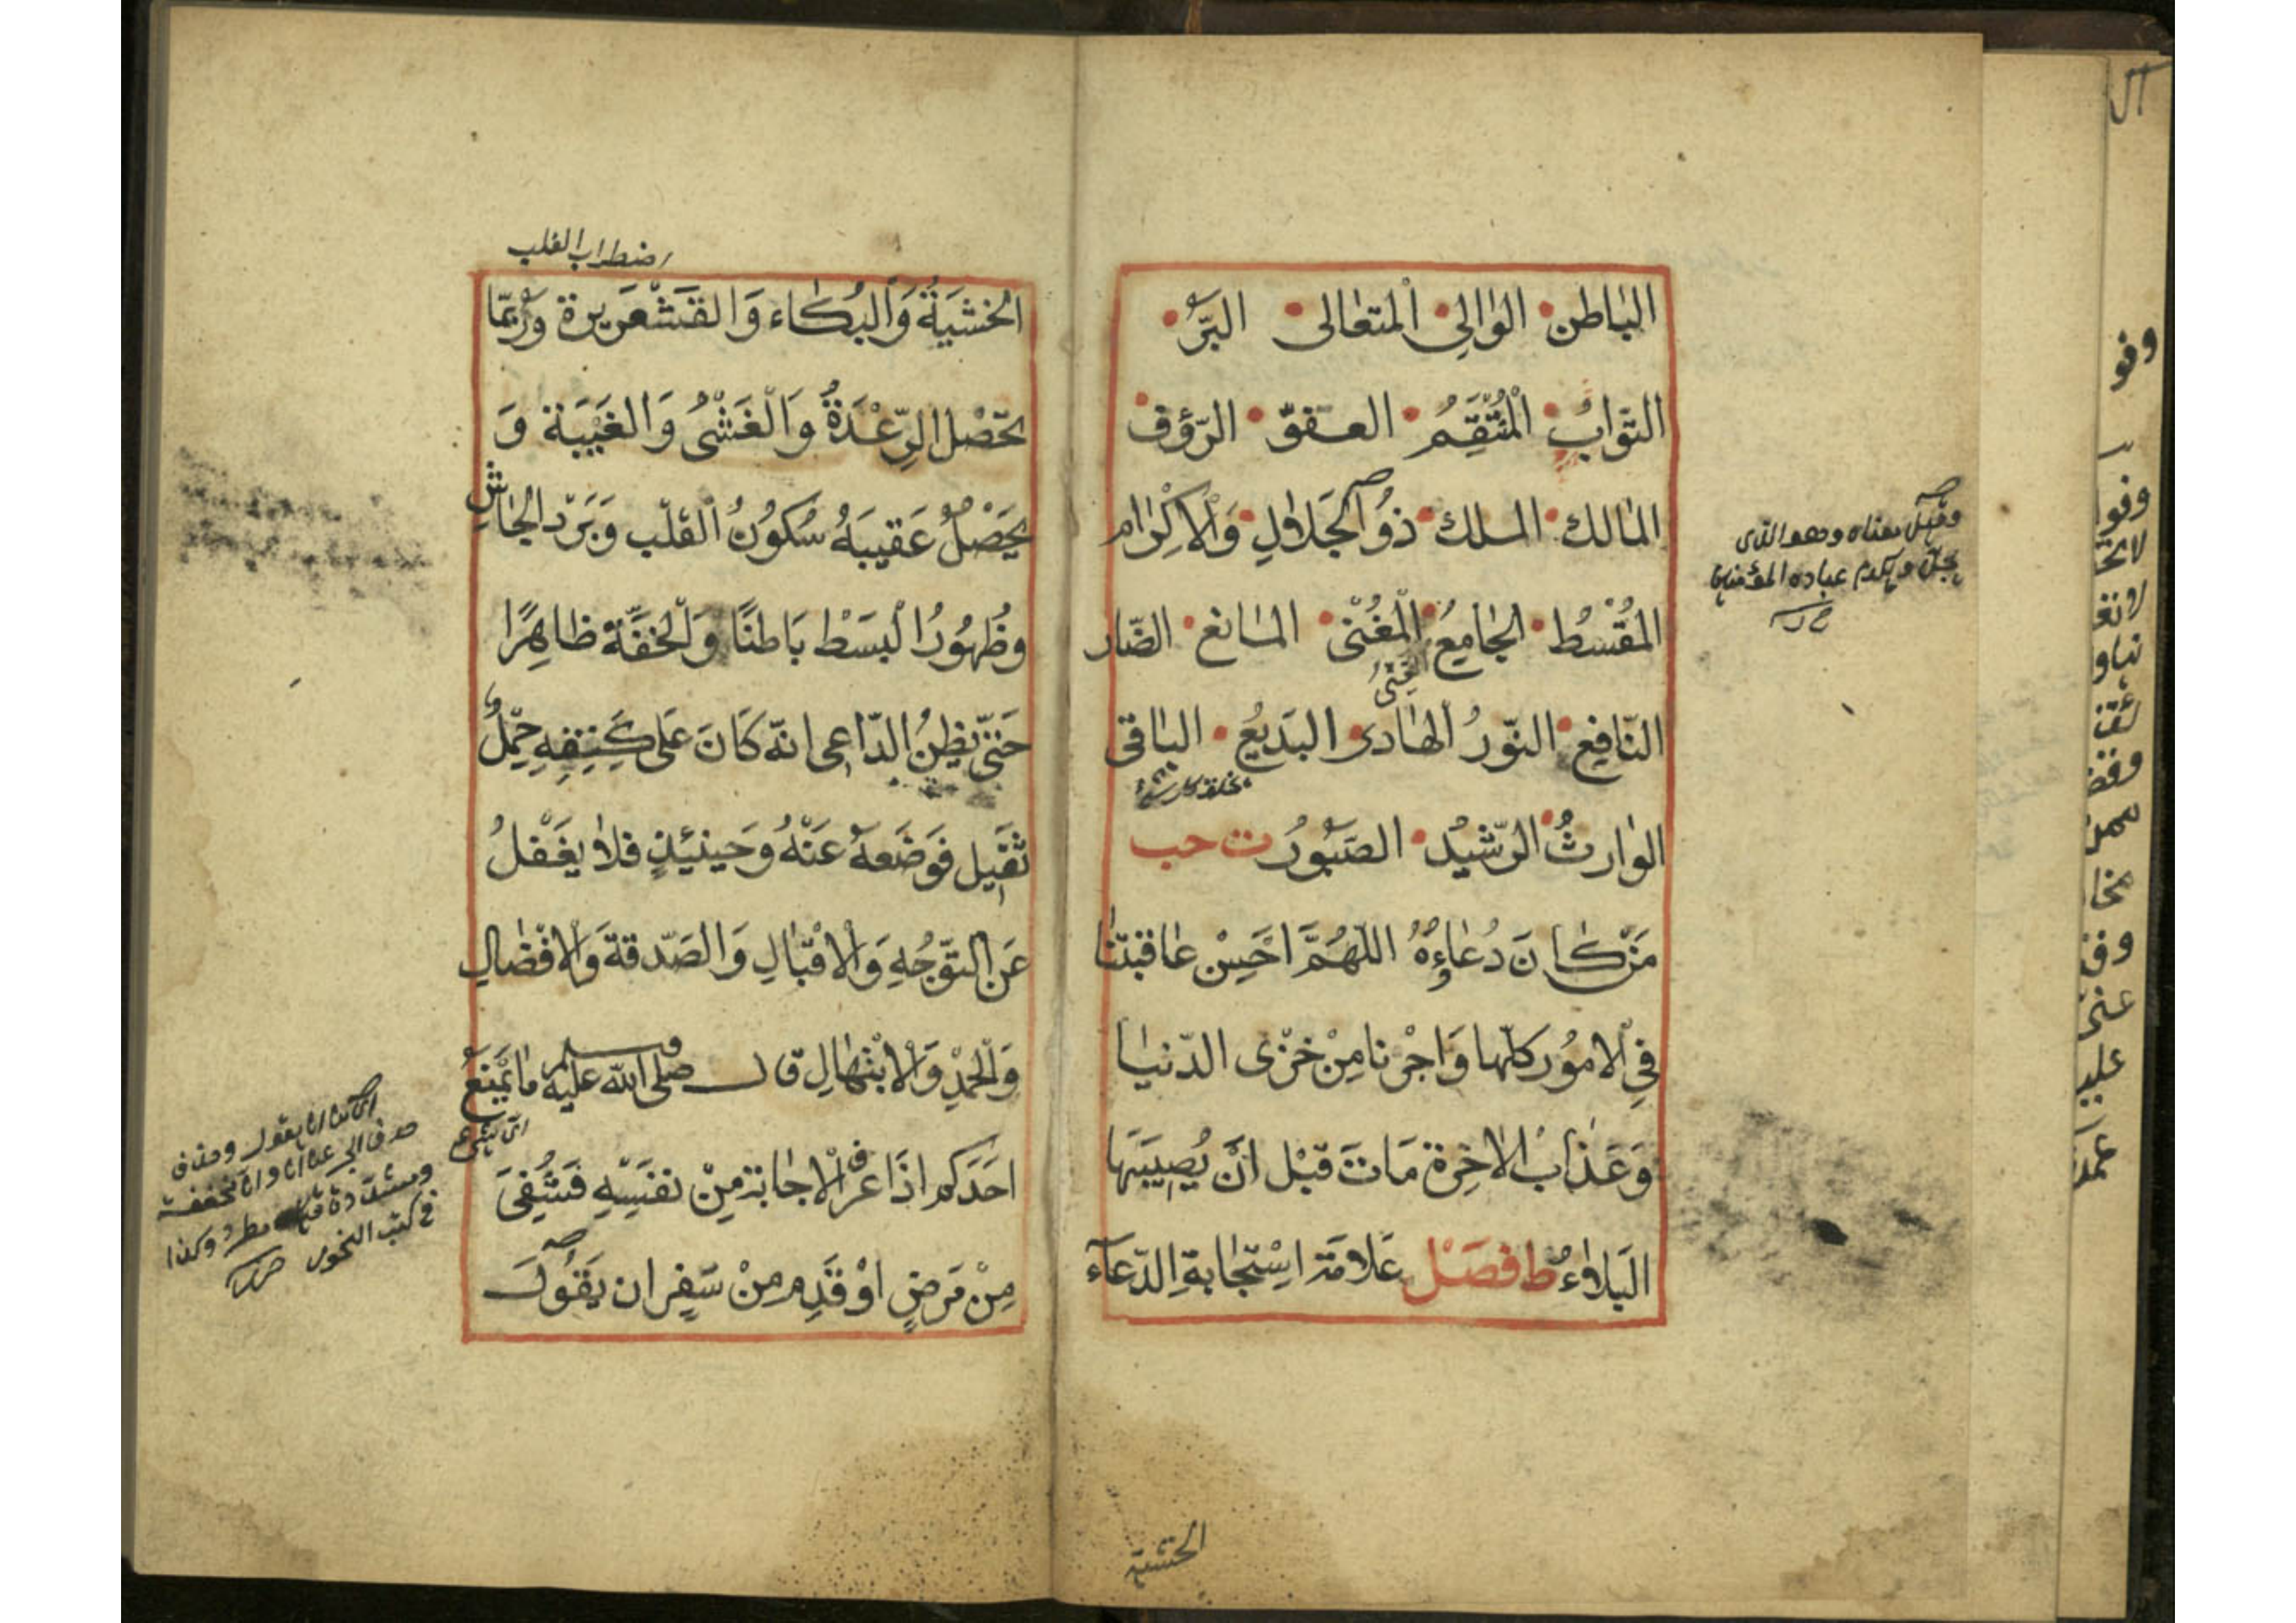 الباطن الوٰالِي اْلمتعٰالى البَرُّ
التوّابُ اْلمُنْتَقِمُ العفوّ الرّؤف
المٰالك الملك ذوُالجَلاٰلِ وَاْلاكِرٰام
المُقْسُط الجٰامِعُ اْلمُغْنى المٰانع الضّار
الغَنىُّ
النّافِع النّورُ الهٰادى البَديعُ الباقى
الوٰارثُ الرّشيدُ الصَبُورُ ت حب
مَنْ كٰانَ دُعٰاءِوُهُ اللهُمَّ احَسِنْ عٰاقبتنٰا
فِي اْلامُور كلّها وَاجْرنا مِنْ خزْى الدّنيٰا
وَعَذٰابْ الاٰخِرة مَاتَ قبْل انَّ يُصِيبَهَا
البَلاٰءُ ط فصَلْ عَلامَة اسِتْجٰابةِ الدّعآء
وقيل معناه وهو الذى
يجلّ ويكرم عباده المؤمنين
الخشية
اضطراب القلب
الخشيَةُ وَاْلبُكاٰء وَالقشْعَريرة وَرُبمّا
يحَصْل الرِّعْدَةُ وَالْغَشْىُ وَالغَيْبَة وَ
يحَصْلُ عَقيبَهُ سُكوُنُ اْلقلْب وَبَرَد الجٰاشِ
وظُهوُرُ اْلبَسَطْ بَاطنًا وَلْلخفّة ظاهِرًا
حَتىّ يظنُ الدّاعِى انهّ كَانَ عَلى كَتِفِهِ حمِلُ
ثقيل فوَضَعهُ عَنْهُ وَحينئِذٍ فلاٰ يغَفْلُ
عَنِ التوّجُهِ وَاْلاقْبٰالِ وَالصَدّقة وَاْلافْضٰالِ
وَالْحَمْدِ وَاْلابْتهٰالِ قال صلى الله عليه وسلم مٰا يمَنعُ
احَدَكم اذَا عرف اْلاجٰابة مِنْ نفسِهِ فشُفِىَ
مِنْ مَرَضٍ اوْ قَدِم مِنْ سَفِر ان يَقوُلَ
فى كتب النحو